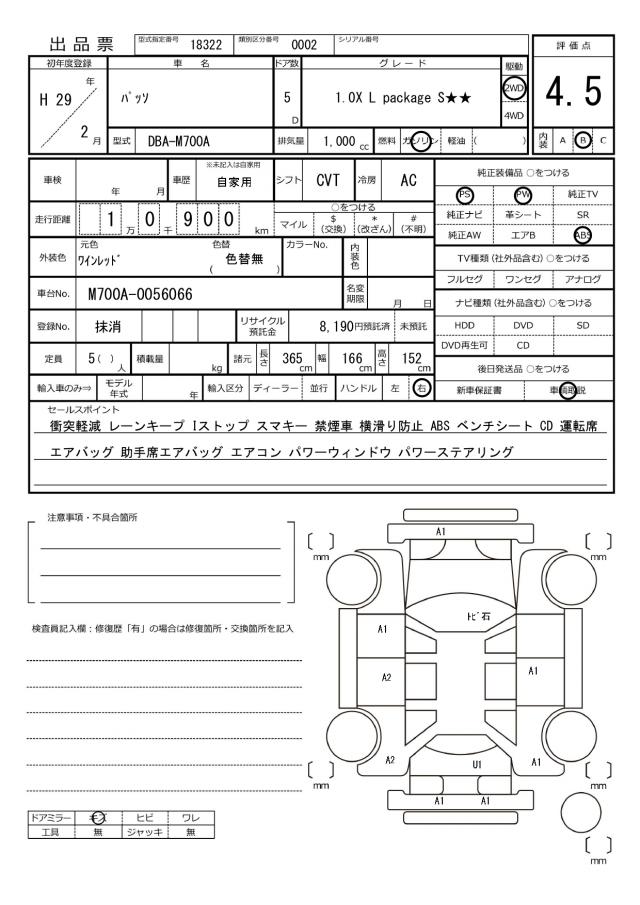 出品票 型式指定番号 18322 類別区分番号 0002 シリアル番号
評価点
4.5
内装 A B C
初年度登録 車名 ドア数 グレード 駆動
H 29 年 2 月
パッソ
5 D
1.0X L package S★★
2WD
4WD
型式 DBA-M700A 排気量 1,000 cc 燃料 ガソリン 軽油 ( )
車検 年 月 車歴 ※未記入は自家用 自家用 シフト CVT 冷房 AC
走行距離 1 万 0 千 900 km
○をつける
マイル $ (交換) * (改ざん) # (不明)
外装色 元色 ワインレッド 色替 ( 色替無 ) カラーNo. 内装色
車台No. M700A-0056066 名変期限 月 日
登録No. 抹消 リサイクル預託金 8,190円預託済 未預託
定員 5( )人 積載量 kg 諸元 長さ 365 cm 幅 166 cm 高さ 152 cm
輸入車のみ⇒ モデル年式 年 輸入区分 ディーラー 並行 ハンドル 左 右
純正装備品 ○をつける
PS PW 純正TV
純正ナビ 革シート SR
純正AW エアB ABS
TV種類(社外品含む) ○をつける
フルセグ ワンセグ アナログ
ナビ種類(社外品含む) ○をつける
HDD DVD SD
DVD再生可 CD
後日発送品 ○をつける
新車保証書 車輌取説
セールスポイント
衝突軽減 レーンキープ Iストップ スマキー 禁煙車 横滑り防止 ABS ベンチシート CD 運転席
エアバッグ 助手席エアバッグ エアコン パワーウィンドウ パワーステアリング
注意事項・不具合箇所
検査員記入欄：修復歴「有」の場合は修復箇所・交換箇所を記入
ドアミラー キズ ヒビ ワレ
工具 無 ジャッキ 無
A1
[ ] mm
[ ] mm
トビ石
A1
A2
A1
A2
U1
A1
[ ] mm
[ ] mm
A1 A1
[ ] mm